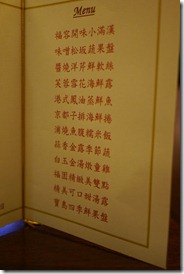 Menu
福容開味小滿漢
味噌松坂蔬果盤
醬燒洋芹鮮軟絲
芙蓉雪花海鮮露
港式鳳油蒸鮮魚
京都子排海鮮捲
蒲燒魚腹糯米飯
蒜香金露季節蔬
白玉金湯燉童雞
福圓精緻美雙點
臻美可口甜湯露
寶島四季鮮果盤